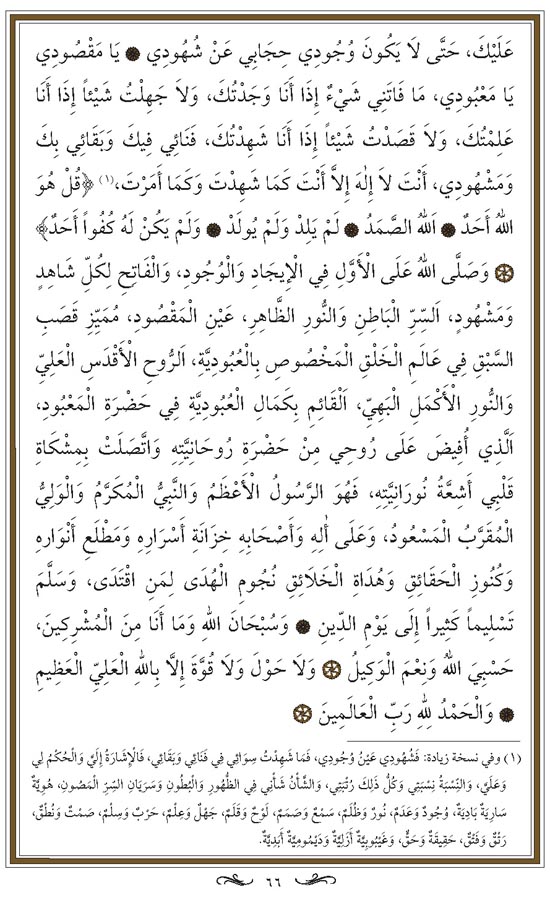 عَلَيْكَ، حَتَّى لَا يَكُونَ وُجُودِي حِجَابِي عَنْ شُهُودِي ۞ يَا مَقْصُودِي
يَا مَعْبُودِي، مَا فَاتَنِي شَيْءٌ إِذَا أَنَا وَجَدْتُكَ، وَلَا جَهِلْتُ شَيْئاً إِذَا أَنَا
عَلِمْتُكَ، وَلَا قَصَدْتُ شَيْئاً إِذَا أَنَا شَهِدْتُكَ، فَنَائِي فِيكَ وَبَقَائِي بِكَ
وَمَشْهُودِي، أَنْتَ لَا إِلٰهَ إِلَّا أَنْتَ كَمَا شَهِدْتَ وَكَمَا أَمَرْتَ،(١) ﴿قُلْ هُوَ
اللهُ أَحَدٌ ۞ اَللهُ الصَّمَدُ ۞ لَمْ يَلِدْ وَلَمْ يُولَدْ ۞ وَلَمْ يَكُنْ لَهُ كُفُواً أَحَدٌ﴾
۞ وَصَلَّى اللهُ عَلَى الْأَوَّلِ فِي الْإِيجَادِ وَالْوُجُودِ، وَالْفَاتِحِ لِكُلِّ شَاهِدٍ
وَمَشْهُودٍ، اَلسِّرِّ الْبَاطِنِ وَالنُّورِ الظَّاهِرِ، عَيْنِ الْمَقْصُودِ، مُمَيِّزِ قَصَبِ
السَّبْقِ فِي عَالَمِ الْخَلْقِ الْمَخْصُوصِ بِالْعُبُودِيَّةِ، اَلرُّوحِ الْأَقْدَسِ الْعَلِيِّ
وَالنُّورِ الْأَكْمَلِ الْبَهِيِّ، اَلْقَائِمِ بِكَمَالِ الْعُبُودِيَّةِ فِي حَضْرَةِ الْمَعْبُودِ،
اَلَّذِي أُفِيضَ عَلَى رُوحِي مِنْ حَضْرَةِ رُوحَانِيَّتِهِ وَاتَّصَلَتْ بِمِشْكَاةِ
قَلْبِي أَشِعَّةُ نُورَانِيَّتِهِ، فَهُوَ الرَّسُولُ الْأَعْظَمُ وَالنَّبِيُّ الْمُكَرَّمُ وَالْوَلِيُّ
الْمُقَرَّبُ الْمَسْعُودُ، وَعَلَى أٰلِهِ وَأَصْحَابِهِ خِزَانَةِ أَسْرَارِهِ وَمَطْلَعِ أَنْوَارِهِ
وَكُنُوزِ الْحَقَائِقِ وَهُدَاةِ الْخَلَائِقِ نُجُومِ الْهُدَى لِمَنِ اقْتَدَى، وَسَلَّمَ
تَسْلِيماً كَثِيراً إِلَى يَوْمِ الدِّينِ ۞ وَسُبْحَانَ اللهِ وَمَا أَنَا مِنَ الْمُشْرِكِينَ،
حَسْبِيَ اللهُ وَنِعْمَ الْوَكِيلُ ۞ وَلَا حَوْلَ وَلَا قُوَّةَ إِلَّا بِاللهِ الْعَلِيِّ الْعَظِيمِ
۞ وَالْحَمْدُ لِلهِ رَبِّ الْعَالَمِينَ ۞
(١) وفي نسخة زيادة: فَشُهُودِي عَيْنُ وُجُودِي، فَمَا شَهِدْتُ سِوَائِي فِي فَنَائِي وَبَقَائِي، فَالْإِشَارَةُ إِلَيَّ وَالْحُكْمُ لِي
وَعَلَيَّ، وَالنِّسْبَةُ نِسْبَتِي وَكُلُّ ذٰلِكَ رُتْبَتِي، وَالشَّأْنُ شَأْنِي فِي الظُّهُورِ وَالْبُطُونِ وَسَرَيَانِ السِّرِّ الْمَصُونِ، هُوِيَّةٌ
سَارِيَةٌ بَادِيَةٌ، وُجُودٌ وَعَدَمٌ، نُورٌ وَظُلَمٌ، سَمْعٌ وَصَمَمٌ، لَوْحٌ وَقَلَمٌ، جَهْلٌ وَعِلْمٌ، حَرْبٌ وَسِلْمٌ، صَمْتٌ وَنُطْقٌ،
رَتْقٌ وَفَتْقٌ، حَقِيقَةٌ وَحَقٌّ، وَغَيْبُوبِيَّةٌ أَزَلِيَّةٌ وَدَيْمُومِيَّةٌ أَبَدِيَّةٌ.
٦٦